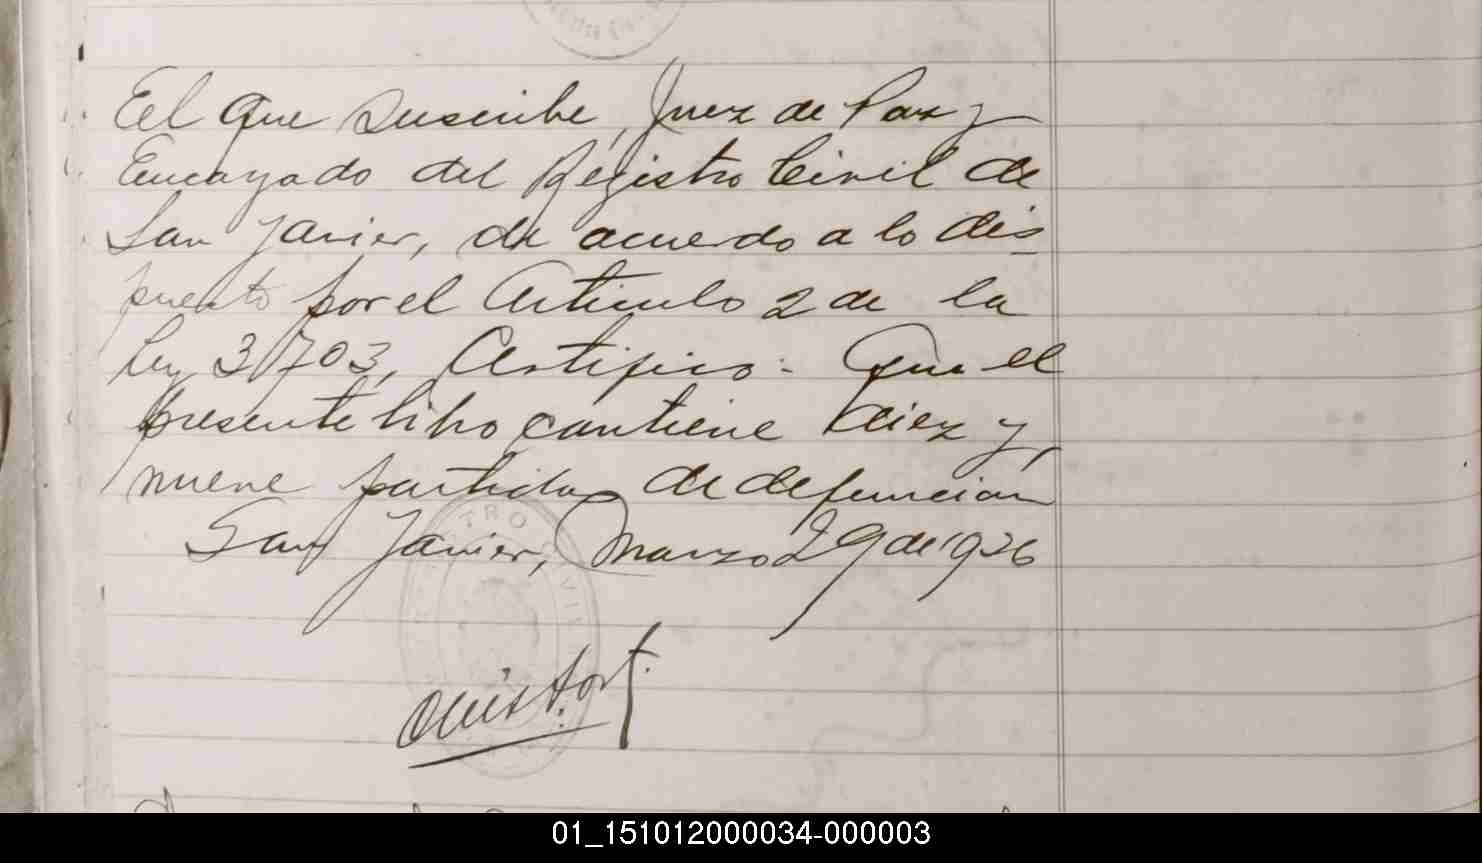 El que suscribe, Juez de Paz y
Encargado del Registro Civil de
San Javier, de acuerdo a lo dis
puesto por el Artículo 2 de la
ley 3703, Certifico: Que el
presente libro contiene diez y
nueve partidas de defunción
San Javier, Marzo 29 de 1926
TRO
VIL
01_151012000034-000003